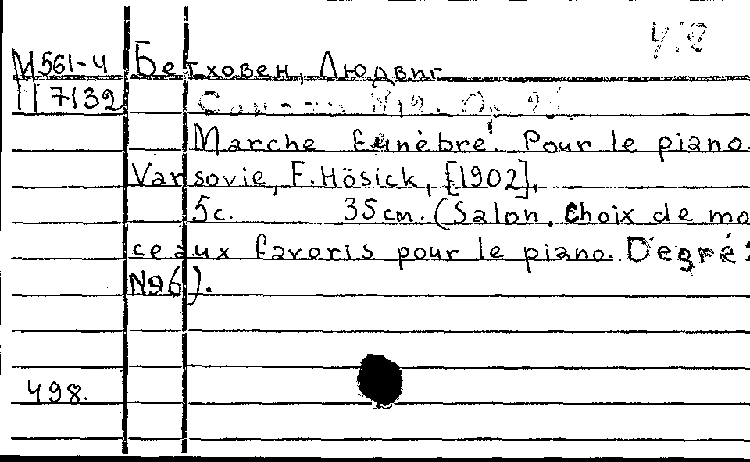 М561-4 Бетховен, Людвиг
7132
Marche funèbre. Pour le piano.
Varsovie, F. Hösick, [1902].
5c. 35cm. (Salon. Choix de mo
ceaux favoris pour le piano. Degré
N96).
498.